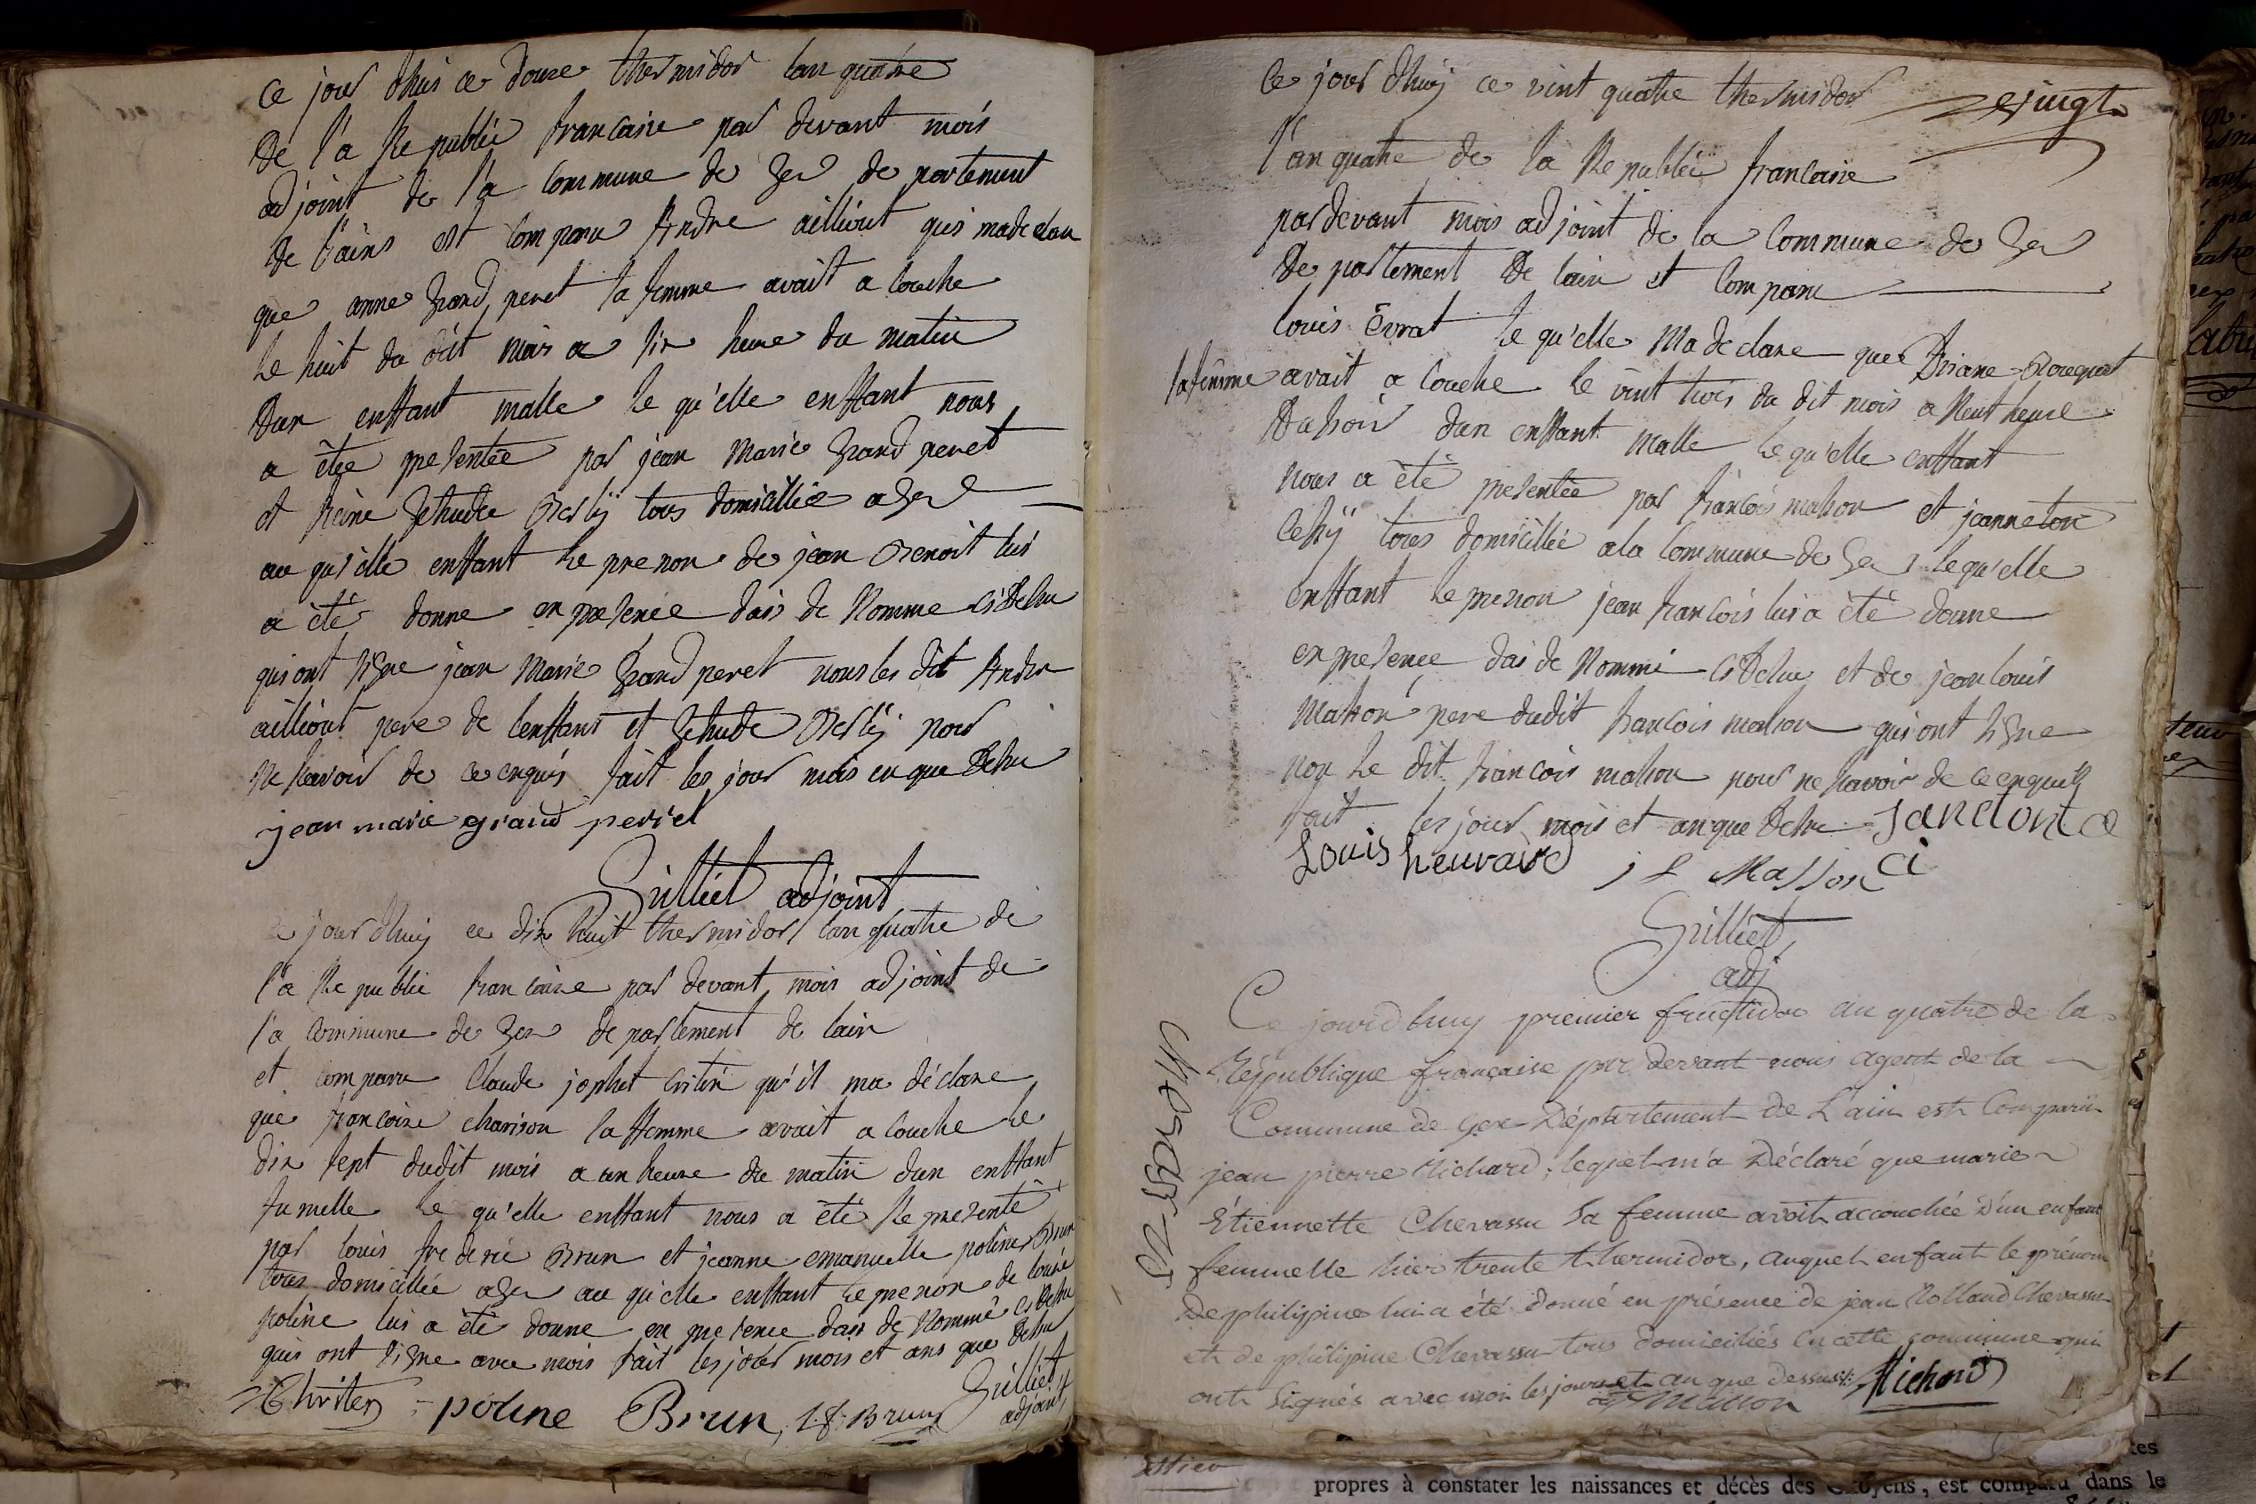 Ce jour dhuis ce douze thermidor lan quatre
de l'a Republic francaise par devant mois
adjoint de l'a Commune de Gex de partement
de l'ains est Comparu Andre ailliout quis madeclau
que anne Grand peret sa femme avait a Couche
le huit du dit mois a six heure du matin
dun enffant malle le qu'elle enffant nous
a étée presentée par jean Marie Grand peret
et tous domicillie a Gex
au qu'elle enffant le prenon de jean Benoit lui
a été donne en presence dais de Nomme Cidesu
quis ont signe jean Marie Grand peret nous les dit Andre
ailliout pere de lenffant et pour
ne savoir de ce enquis fait les jour mois en que desu
jean marie grand perret
Gilliet adjoint
Ce jour dhuy ce dix huit thermidor lan quatre de
l'a Republic francaise par devant mois adjoint de
l'a Commune de Gex de partement de lain
et comparu Claude josphet qu'il ma déclare
que francoise charison sa ffemme avait a Couche le
dix sept dudit mois a un heure du matin dun enffant
fumelle le qu'elle enffant nous a été Re presenté
par louis frederic Brun et jeanne emanuelle poline Brun
tous domicillie a Gex au qu'elle enffant le prenon de louise
poline lui a été donne en presence dais de Nommé cidesu
quis ont signe avec mois fait les jour mois et ans que desu
poline Brun, L. f. Brun Gilliet
adjoint
Ce jour dhuy ce vint quatre thermidor
l'an quatre de la Republic francaise
par devant mois adjoint de la Commune de Gex
de partement de lain et Comparu
louis Evrat le qu'elle Ma declare que
sa femme avait a Couche le vint trois du dit mois a Neuf heure
Du soir dun enffant malle le qu'elle enffant
nous a été presentée par francois masson et jeanneton
tous domicillié a la Commune de Gex le qu'elle
enffant le prenon jean francois lui a été donne
en presence dai de Nommé Cidesus et de jean louis
Masson pere dudit francois masson quis ont signe
non le dit francois masson pour ne savoir de ce enquis
fait les jour mois et an que desu janeton
Louis heuvrard j L Masson
Gilliet
adj
Ce jourdhuy premier fructidor an quatre de la
République française par devant nous agent de la
Commune de Gex Département de L'ain est Comparu
jean pierre Richard, lequel m'a Déclaré que marie
Etiennette Chevassu Sa femme avoit accouchée d'un enfant
femmelle hier trente thermidor, auquel enfant le prénom
de philipine lui a été donné en présence de jean Rolland Chevassu
et de philipine Chevassu tous domiciliés en cette commune qui
ont signés avec moi les jours et an que dessus Richard
Masson
propres à constater les naissances et décès des Citoyens, est comparu dans le